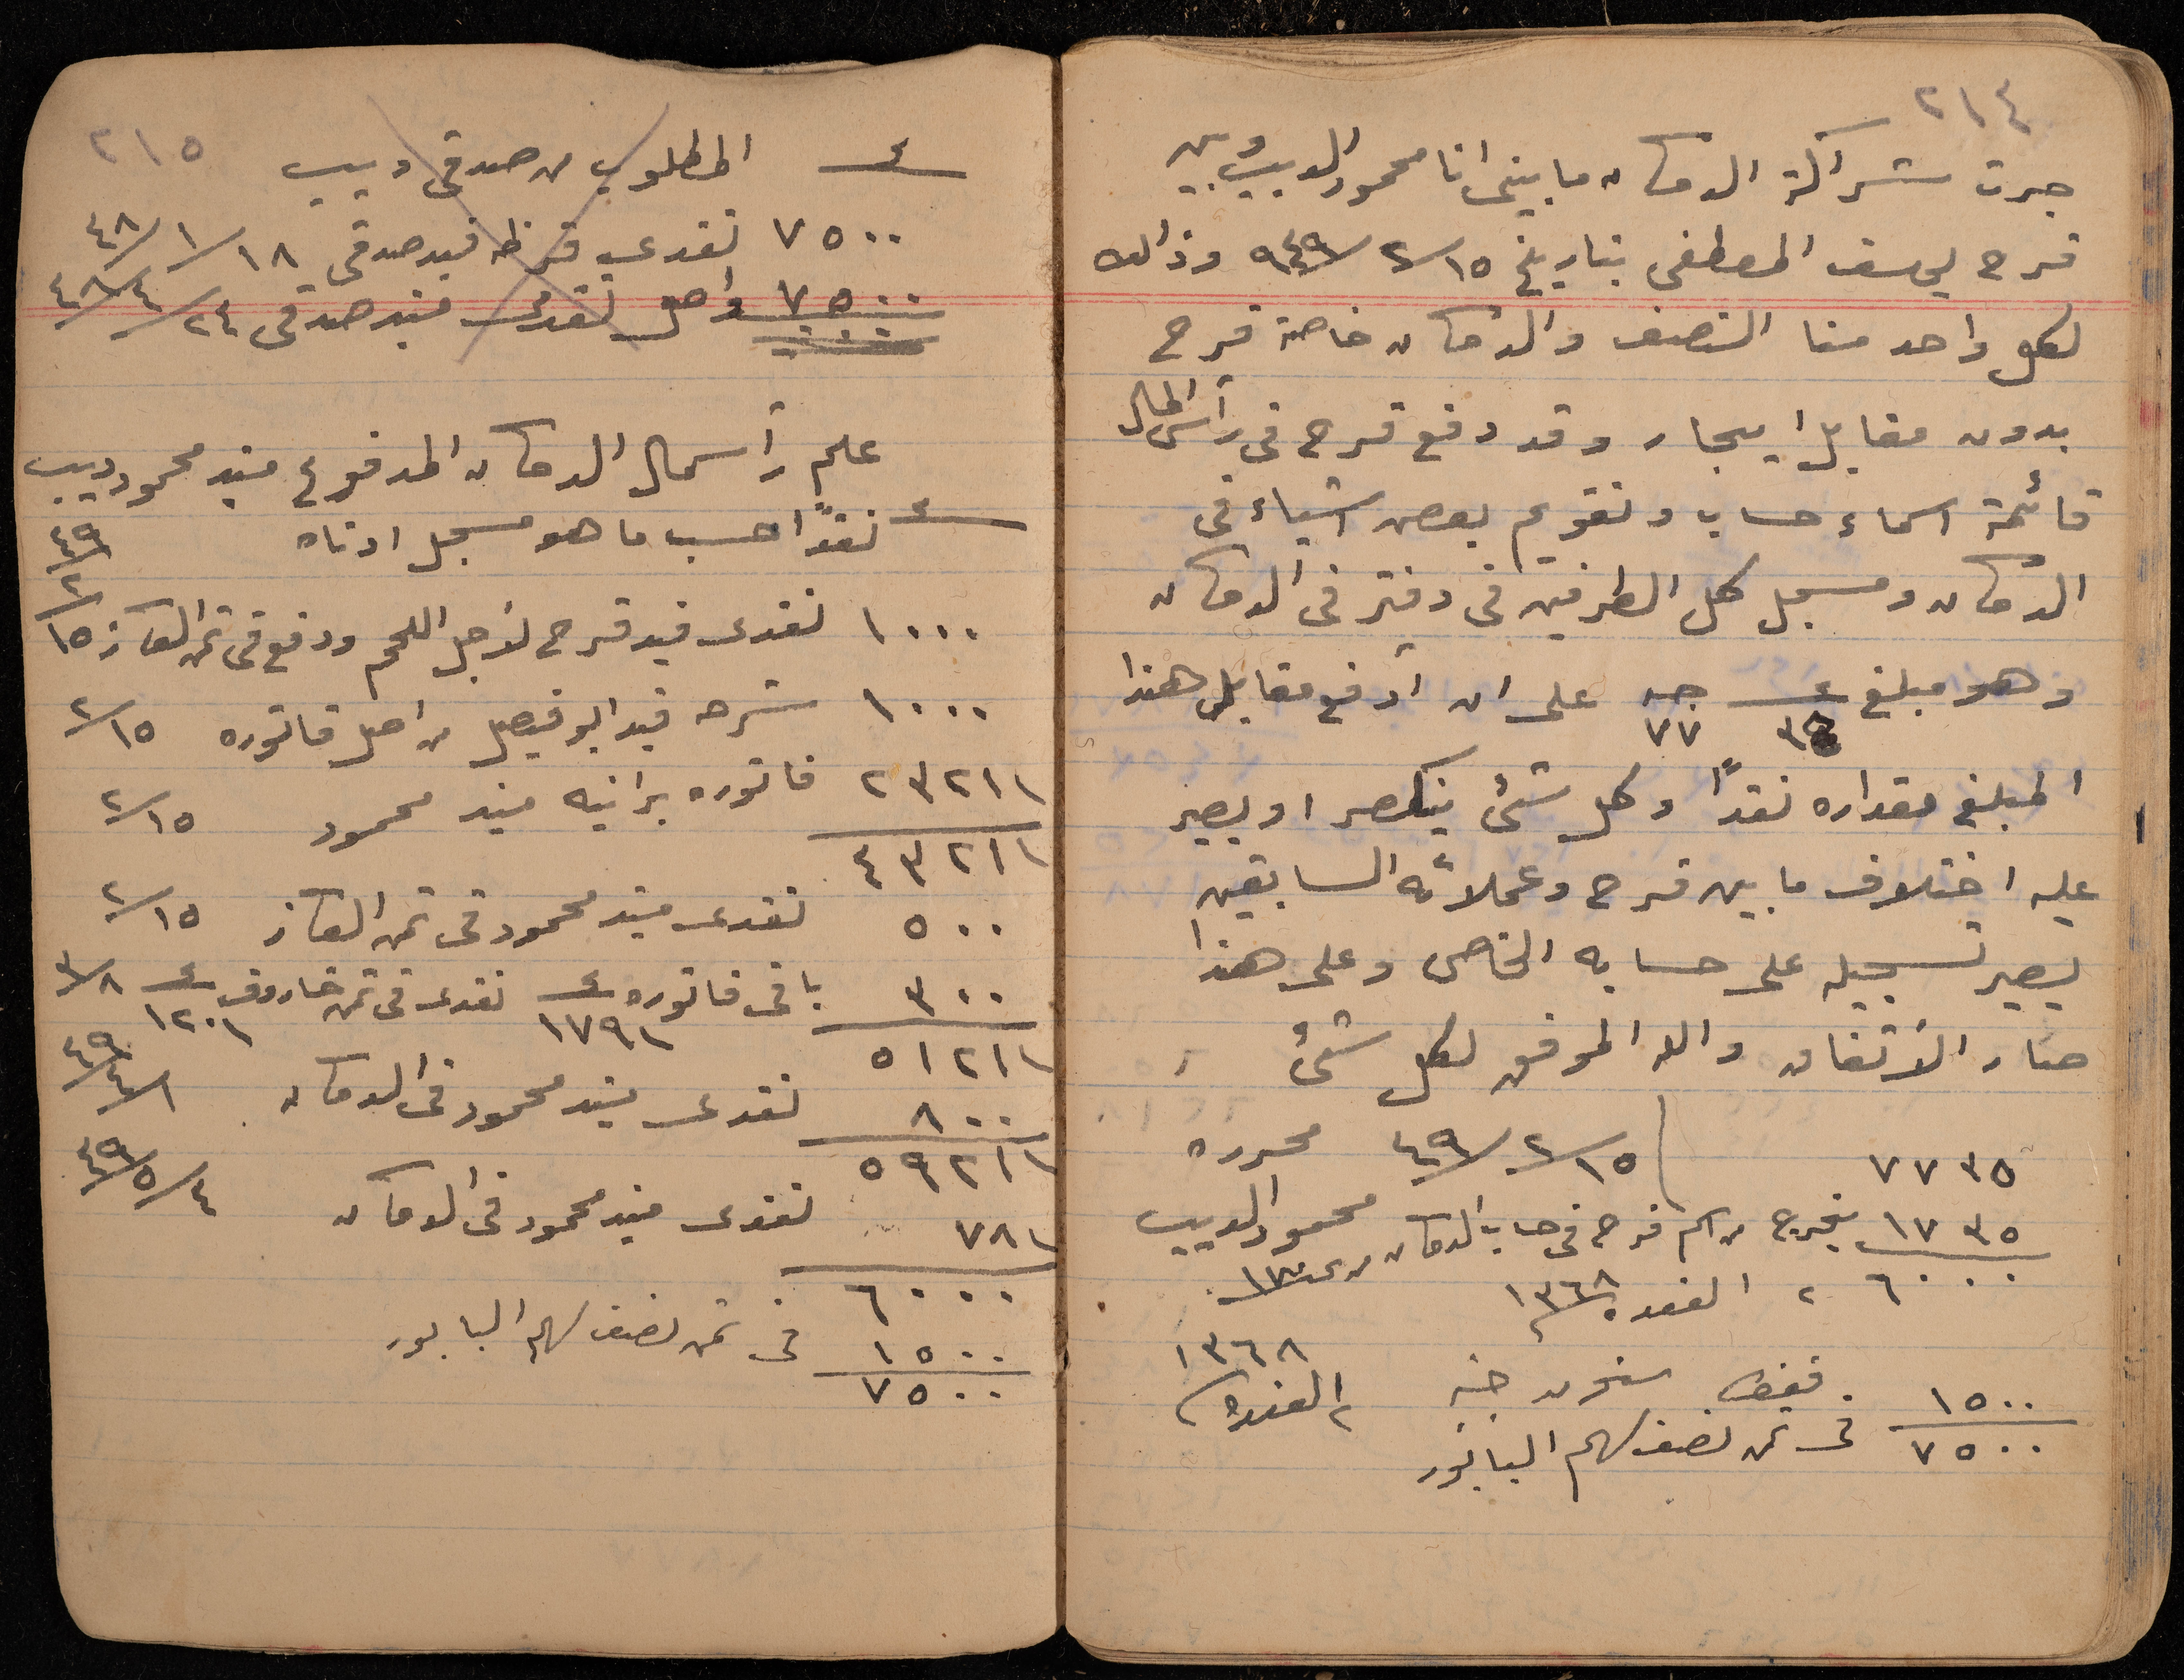 ٢١٤
جرت شراكة الدكان ما بيني انا محمود الديب وبين
فرح يوسف المصطفى بتاريخ ١٥/٢/٩٤٩ وذالك
لكل واحد منا النصف والدكان خاصة فرح
بدون مقابل ايجار وقد دفع فرح في رأس المال
قائمة اسماء حساب وتقويم بعض اشياء في
الدكان ومسجل كل الطرفين في دفتر في الدكان
وهو مبلغ ٣٥ ٧٧ جنه على ان أدفع مقابل هذا
المبلغ مقداره نقداً وكل شئ ينكسر او يصير
عليه اختلاف ما بين فرح وعملائه السابقين
يصير تسجيله على حسابه الخاص وعلى هذا
صار الأتفاق والله الموفق لكل شئ
٧٧٣٥ ١٥/٢/٤٩ محرره
١٧٣٥ يخرج من اسم فرح في حساب الدكان محمود الديب
٦٠٠٠ ٢ القعده ١٣٦٨
١٥٠٠ فقط ستون جنيه ٢ القعده ١٣٦٨
٧٥٠٠ في ثمن نصف سهم البابور
٢١٥
المطلوب من صدقي ديب
٧٥٠٠ نقدي قرظه فيد صدقي ١٨/١/٤٨
٧٥٠٠ واصل نقدي منيد صدقي ٢٤/٤/٤٨
٠٠٠٠
علم رأسمال الدكان المدفوع منيد محمود ديب
نقداً حسب ما هو مسجل ادناه
١٠٠٠ نقدي فيد فرح لأجل اللحم ودفع في ثمن الغاز ١٥/٢/٤٩
١٠٠٠ شرحه فيد ابو فيصل من اصل فاتوره ١٥/٢
٢٣٢١١ فاتوره برانيه منيد محمود ١٥/٢
٤٣٢١١
٥٠٠ نقدي منيد محمود في ثمن الغاز ١٥/٢
٣٠٠ باقي فاتوره ١٧٩١ نقدي في ثمن خاروف ١٢٠١ ٨/٣
٥١٢١١
٨٠٠ نقدي منيد محمود في الدكان ١/٤/٤٩
٥٩٢١١
٧٨١ نقدي منيد محمود في الدكان ٤/٥/٤٩
٦٠٠٠
١٥٠٠ في ثمن نصف سهم البابور
٧٥٠٠